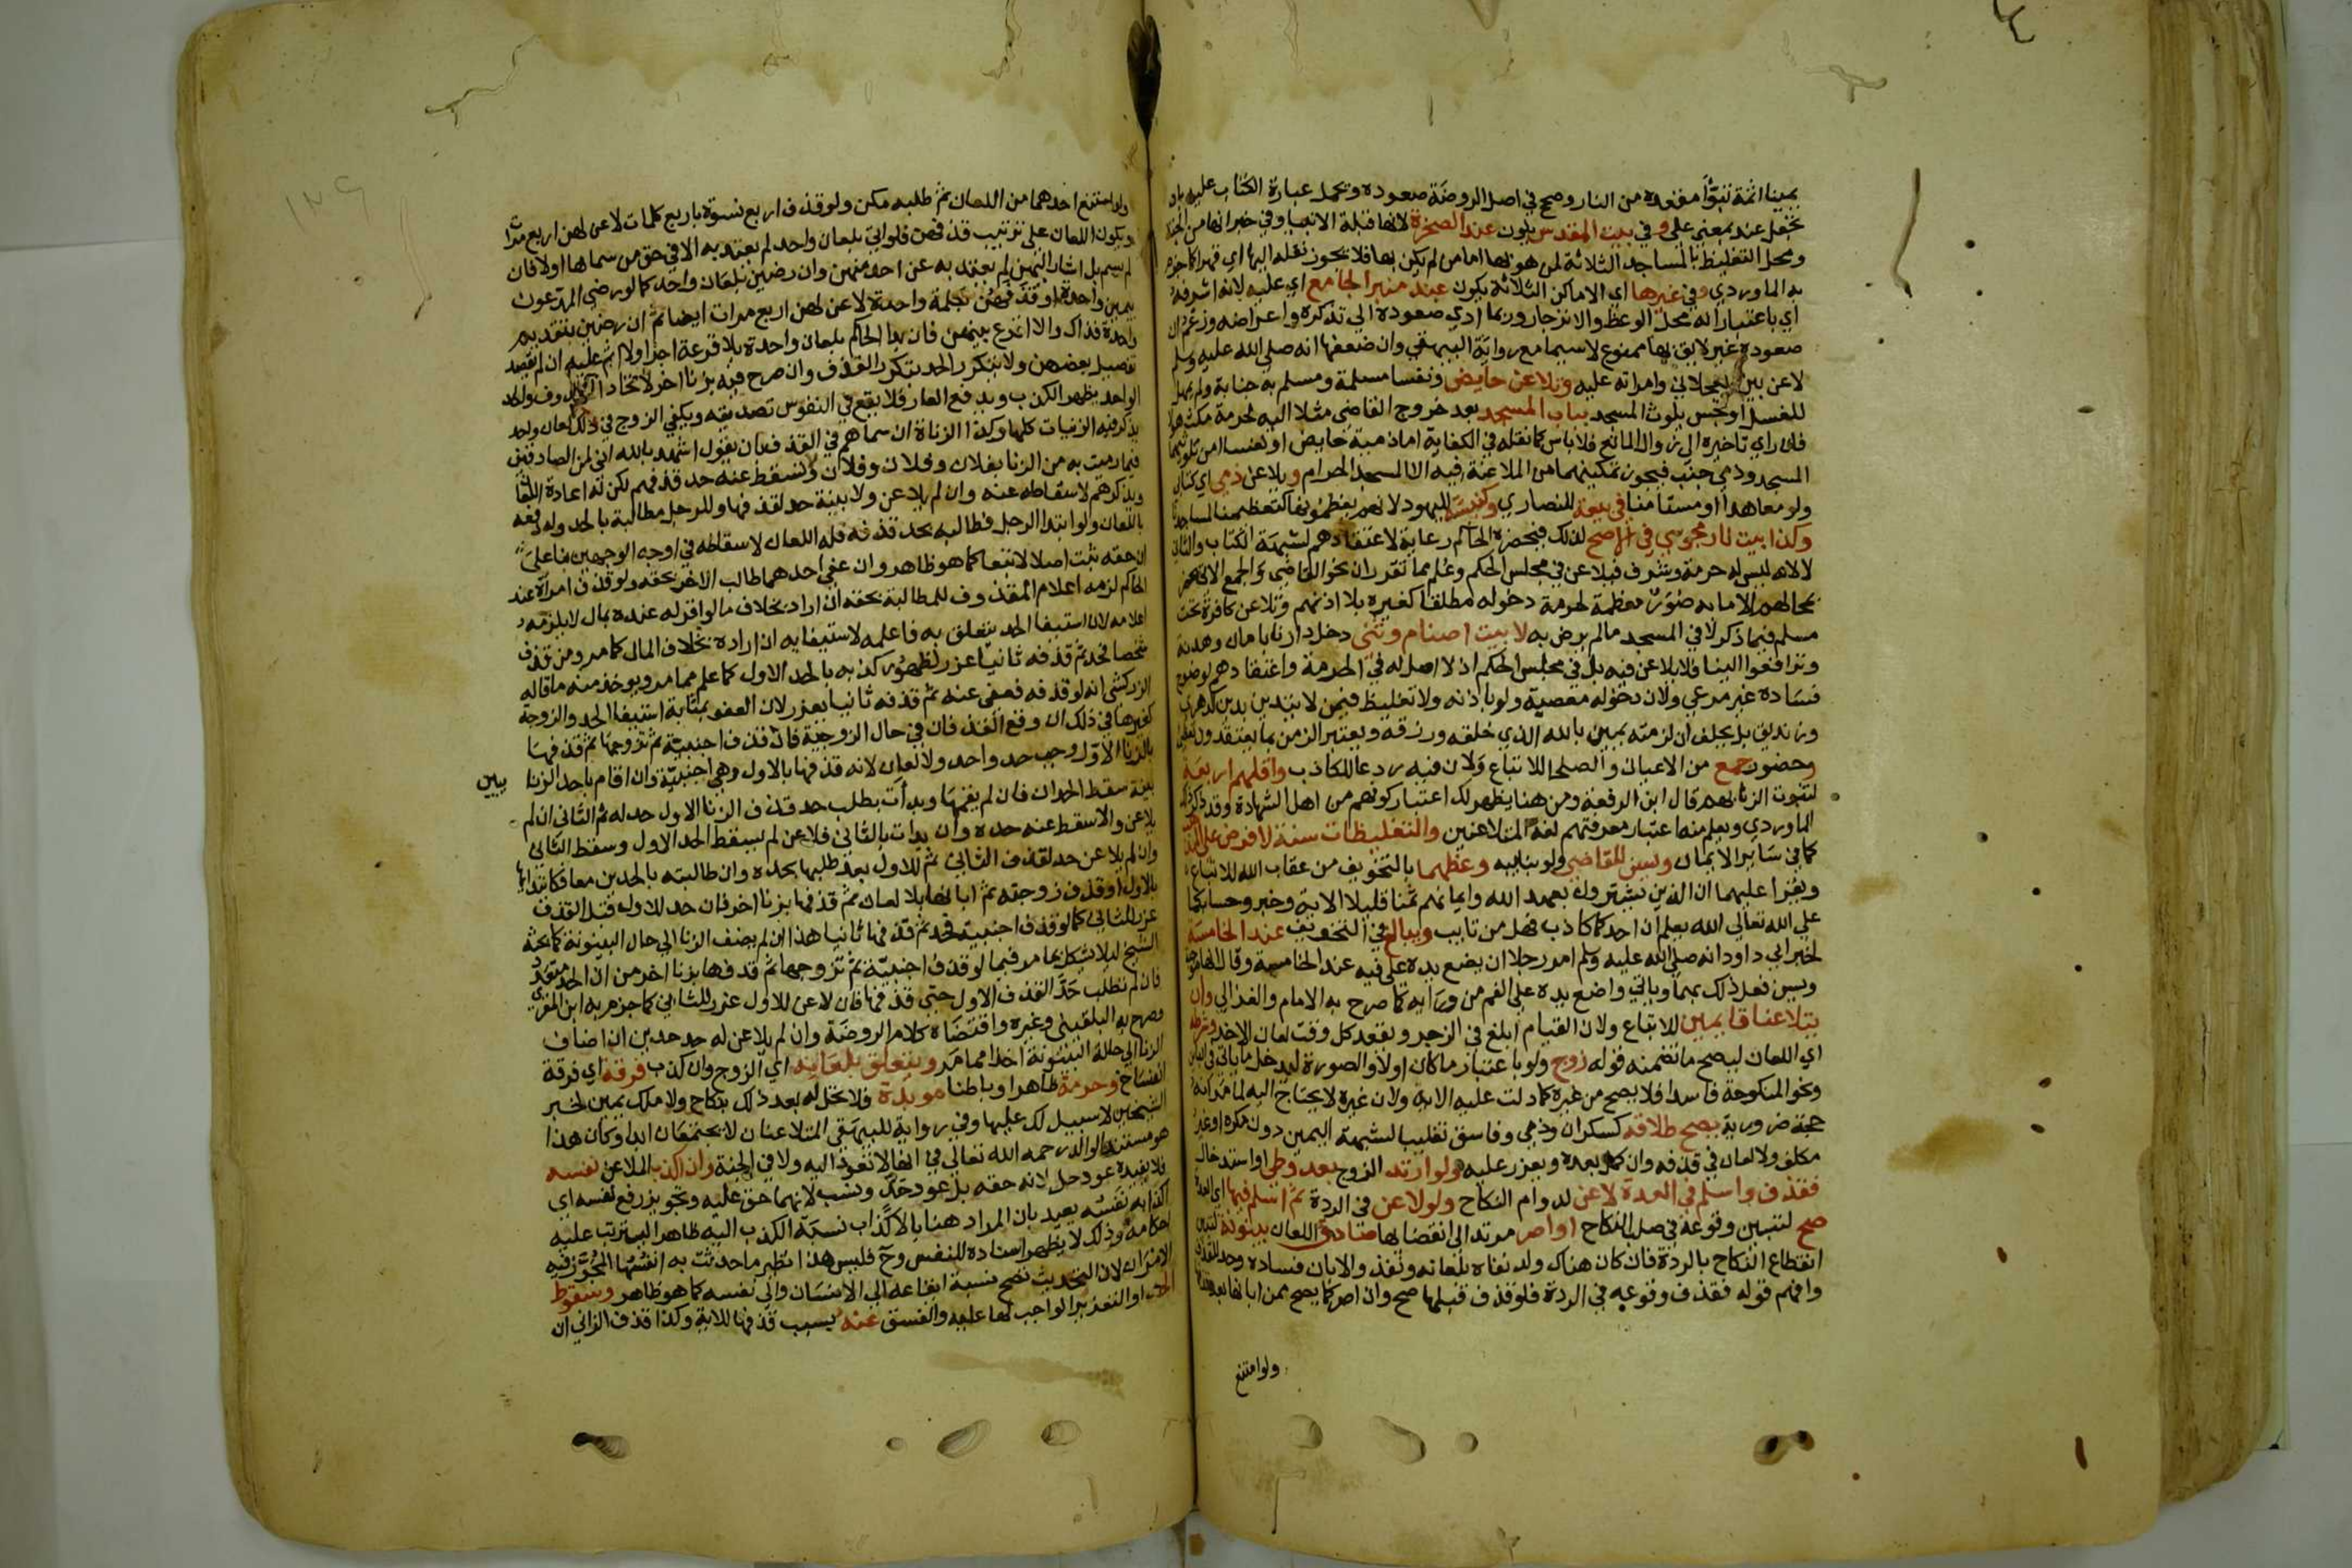 يمينا اثمة تبوأ مقعده من النار وصحح في اصل الروضة صعوده وتحمل عبارة الكتاب عليه بان
تجعل عند بمعنى على وفي بيت المقدس يكون عند الصخرة لانها قبلة الانبيا وفي خبر انها من الجنة
ومحل التغليظ بالمساجد الثلاثة لمن هو بها اما من لم يكن بها فلا يجوز نقله اليها اي قهرا كما جزم
به الماوردي وفي غيرها اي الاماكن الثلاثة يكون عند منبر الجامع اي عليه لانه اشرفه
اي باعتبار انه محل الوعظ والانزجار وربما ادي صعوده الي تذكره واعراضه وزعم ان
صعوده غير لايق بها ممنوع لاسيما مع رواية البيهقي وان ضعفها انه صلى الله عليه وسلم
لاعن بين العجلاني وامراته عليه وتلاعن حايض ونفسا مسلمة ومسلم به جنابة ولم يمهل
للغسل او نجس يلوث المسجد بباب المسجد بعد خروج القاضي مثلا اليه لحرمة مكث
فان راي تاخيره الي زوال المانع فلا باس كما نقله في الكفاية اما ذمية حايض او نفسا امن تلويثها
المسجد وذمي جنب فيجوز تمكينهما من الملاعنة فيه الا المسجد الحرام ويلاعن ذمي اي كتابي
ولو معاهدا او مستامنا في بيعة للنصاري وكنيسة لليهود لانهم يعظمونها كتعظيمنا لمساجدنا
وكذا بيت نار مجوسي في الاصح لذلك فيحضره الحاكم رعاية لاعتقادهم لشبهة الكتاب والثاني
لا لانه ليس له حرمة وشرف فيلاعن في مجلس الحكم وعلم مما تقرر ان نحو القاضي والجمع الاتي يحضر
محالهم الا ما به صور معظمة لحرمة دخوله مطلقا كغيره بلا اذنهم وتلاعن كافرة تحت
مسلم فيما ذكر لا في المسجد مالم يرض به لا بيت اصنام وثني دخل دارنا بامان وهدنة
وترافعوا الينا فلا يلاعن فيه بل في مجلس الحكم اذ لا اصل له في الحرمة واعتقادهم لوضوح
فساده غير مرعي ولان دخوله معصية ولو باذنه ولا تغليظ فيمن لا يتدين بدين كدهري
وزنديق بل يحلف ان لزمته يمين بالله الذي خلقه ورزقه ويعتبر الزمن بما يعتقدون تعظيمه
وحضور جمع من الاعيان والصلحا للاتباع ولان فيه ردعا للكاذب واقلهم اربعة
لثبوت الزنا بهم قال ابن الرفعة ومن هنا يظهر لك اعتبار كونهم من اهل الشهادة وقد ذكر ذلك
الماوردي ويعلم منه اعتبار معرفتهم لغة المتلاعنين والتغليظات سنة لا فرض علي المذهب
كما في ساير الايمان ويسن للقاضي ولو بنايبه وعظهما بالتخويف من عقاب الله للاتباع
ويقرا عليهما ان الذين يشترون بعهد الله وايمانهم ثمنا قليلا الاية وخبر وحسابكما
علي الله تعالي الله يعلم ان احدكما كاذب فهل من تايب ويبالغ في التخويف عند الخامسة
لخبر ابي داود انه صلى الله عليه وسلم امر رجلا ان يضع يده على فيه عند الخامسة وقال انها موجبة
ويسن فعل ذلك بهما وياتي واضع يده علي الفم من ورايه كما صرح به الامام والغزالي وان
يتلاعنا قايمين للاتباع ولان القيام ابلغ في الزجر ويقعد كل وقت لعان الاخر وشرطه
اي اللعان ليصح ما تضمنه قوله زوج ولو باعتبار ما كان اولا والصورة ليدخل ما ياتي في الباين
ونحو المنكوحة فاسدا فلا يصح من غيره كما دلت عليه الاية ولان غيره لا يحتاج اليه لما مر انه
حجة ضرورية يصح طلاقه كسكران وذمي وفاسق تغليبا لشبهة اليمين دون مكره وغير
مكلف ولا لعان في قذفه وان كمل بعده ويعزر عليه ولو ارتد الزوج بعد وطي او استدخال
فقذف واسلم في العدة لاعن لدوام النكاح ولو لاعن في الردة ثم اسلم فيها اي العدة
صح لتبين وقوعه في صلب النكاح او اصر مرتدا الي انقضايها صادف اللعان بينونة لتبين
انقطاع النكاح بالردة فان كان هناك ولد نفاه بلعانه ونفذ والا بان فساده وحد للقذف
وافهم قوله فقذف وقوعه في الردة فلو قذف قبلها صح وان اصر كما يصح ممن ابانها بعد قذفه
ولو امتنع
ولو امتنع احدهما من اللعان ثم طلبه مكن ولو قذف اربع نسوة باربع كلمات لاعن لهن اربع مرات
ويكون اللعان على ترتيب قذفهن فلو اتي بلعان واحد لم يعتد به الا في حق من سماها اولا فان
لم يسم بل اشار اليهن لم يعتد به عن احد منهن وان رضين بلعان واحد كما لو رضي المدعون
بيمين واحدة او قذفهن بكلمة واحدة لاعن لهن اربع مرات ايضا ثم ان رضين بتقديم
واحدة فذاك والا اقرع بينهن فان بدا الحاكم بلعان واحدة بلا قرعة اجزا ولا اثم عليه ان لم يقصد
تفضيل بعضهن ولا يتكرر الحد بتكرر القذف وان صرح فيه بزنا اخر لاتحاد المقذوف ولحد
الواحد يظهر الكذب ويدفع العار فلا يقع في النفوس تصديقه ويكفي الزوج في ذلك لعان واحد
يذكر فيه الزنيات كلها وكذا الزناة ان سماهم في القذف بان يقول اشهد بالله اني لمن الصادقين
فيما رميت به من الزنا بفلان وفلان وفلان ويسقط عنه حد قذفهم لكن له اعادة اللعان
ويذكرهم لاسقاطه عنه وان لم يلاعن ولا بينة حد لقذفها وللرجل مطالبة بالحد وله دفعه
باللعان ولو ابتدا الرجل فطالبه بحد قذفه فله اللعان لاسقاطه في اوجه الوجهين بنا علي
ان حقه ثبت اصلا لا تبعا كما هو ظاهر وان عفي احدهما طالب الاخر بحقه ولو قذف امراة عند
الحاكم لزمه اعلام المقذوف للمطالبة بحقه ان اراد بخلاف ما لو اقر له عنده بمال لا يلزمه
اعلامه لان استيفا الحد يتعلق به فاعلمه لاستيفايه ان اراده بخلاف المال كما مر ومن قذف
شخصا فحد ثم قذفه ثانيا عزر لظهور كذبه بالحد الاول كما علم مما مر ويوخذ منه ما قاله
الزركشي انه لو قذفه فعفي عنه ثم قذفه ثانيا يعزر لان العفو بمثابة استيفا الحد والزوجة
كغيرها في ذلك ان وقع القذفان في حال الزوجية فان قذف اجنبية ثم تزوجها ثم قذفها
بالزنا الاول وجب حد واحد ولا لعان لانه قذفها بالاول وهي اجنبية وان اقام باحد الزنا يين
بينة سقط الحدان فان لم يقمها وبدات بطلب حد قذف الزنا الاول حد له ثم الثاني ان لم
يلاعن والا سقط عنه حده وان بدات بالثاني فلاعن لم يسقط الحد الاول وسقط الثاني
وان لم يلاعن حد لقذف الثاني ثم للاول بعد طلبها بحده وان طالبته بالحدين معا فكابتدايها
بالاول او قذف زوجته ثم ابانها بلا لعان ثم قذفها بزنا اخر فان حد للاول قبل القذف
عزر للثاني كما لو قذف اجنبية فحد ثم قذفها ثانيا هذا ان لم يضف الزنا الي حال البينونة كما بحثه
الشيخ ليلا يشكل بما مر فيما لو قذف اجنبية ثم تزوجها ثم قذفها بزنا اخر من ان الحد متعدد
فان لم تطلب حد القذف الاول حتى قذفها فان لاعن للاول عزر للثاني كما جزم به ابن المقري
وصرح به البلقيني وغيره واقتضاه كلام الروضة وان لم يلاعن له حد حدين ان اضاف
الزنا الي حالة البينونة اخذا مما مر ويتعلق بلعانه اي الزوج وان كذب فرقة اي فرقة
انفساخ وحرمة ظاهرا وباطنا موبدة فلا تحل له بعد ذلك بنكاح ولا ملك يمين لخبر
الشيخين لا سبيل لك عليها وفي رواية للبيهقي المتلاعنان لا يجتمعان ابدا وكان هذا
هو مستند الوالد رحمه الله تعالي في انها لا تعود اليه ولا في الجنة وان اكذب الملاعن نفسه
فلا يفيده عود حل لانه حقه بل عود حد ونسب لانهما حق عليه وتجويز رفع نفسه اي
اكذابه نفسه بعيد بان المراد هنا بالاكذاب نسبة الكذب اليه ظاهرا ليترتب عليه
احكامه وذلك لا يظهر اسناده للنفس وح فليس هذا نظير ما حدثت به انفسها المجوز فيه
الامران لان التحديث تصح نسبة ايقاعه الي الانسان والي نفسه كما هو ظاهر وسقوط
الحد او التعزير الواجب لها عليه والفسق عنه بسبب قذفها للاية وكذا قذف الزاني ان